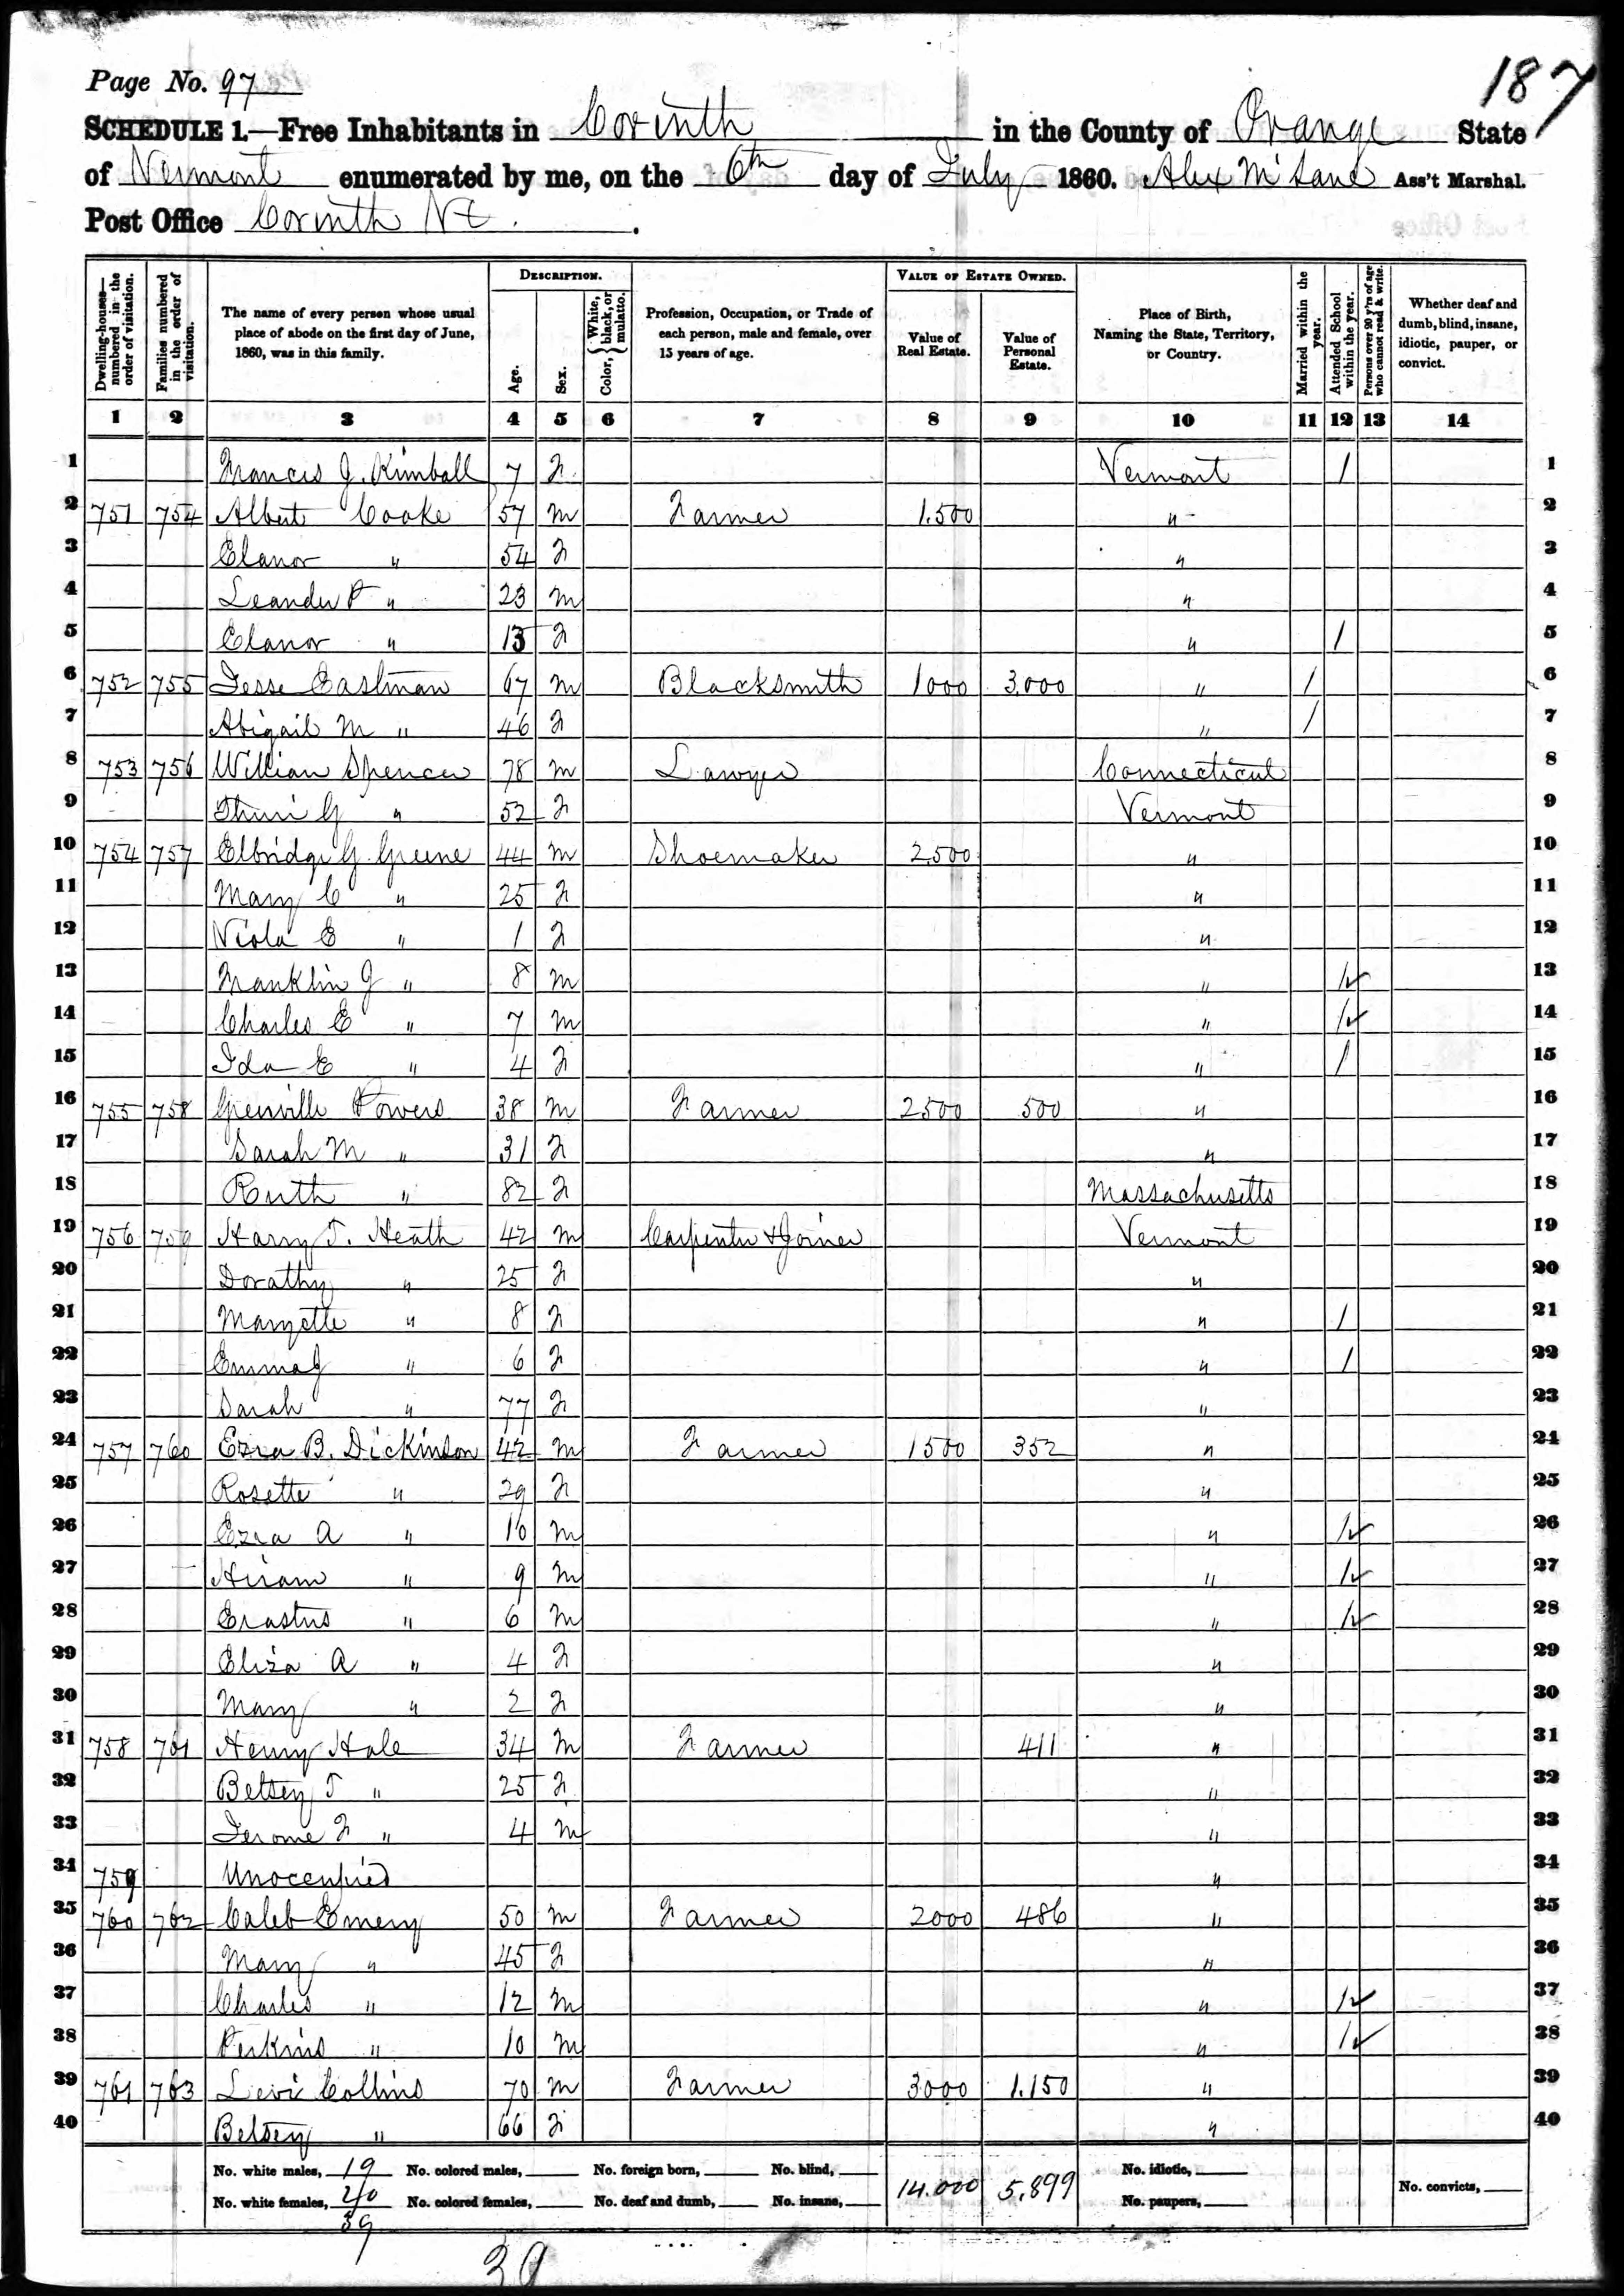 Page No. 97
187
SCHEDULE 1.—Free Inhabitants in Corinth in the County of Orange State
of Vermont enumerated by me, on the 6th day of July 1860. Alex McLane Ass't Marshal.
Post Office Corinth Vt.
Dwelling-houses—numbered in the order of visitation.
Families numbered in the order of visitation.
The name of every person whose usual place of abode on the first day of June, 1860, was in this family.
DESCRIPTION.
Age.
Sex.
Color, { White, black, or mulatto.
Profession, Occupation, or Trade of each person, male and female, over 15 years of age.
VALUE OF ESTATE OWNED.
Value of Real Estate.
Value of Personal Estate.
Place of Birth, Naming the State, Territory, or Country.
Married within the year.
Attended School within the year.
Persons over 20 y'rs of age who cannot read & write.
Whether deaf and dumb, blind, insane, idiotic, pauper, or convict.
1 2 3 4 5 6 7 8 9 10 11 12 13 14
1 Frances J. Kimball 7 F Vermont / 1
2 751 754 Albert Cooke 57 M Farmer 1.500 " 2
3 Elanor " 54 F " 3
4 Leander P " 23 M " 4
5 Elanor " 13 F " / 5
6 752 755 Jesse Eastman 67 M Blacksmith 1000 3.000 " / 6
7 Abigail M " 46 F " / 7
8 753 756 William Spencer 78 M Lawyer Connecticut 8
9 G " 52 F Vermont 9
10 754 757 Elbridge G. Greene 44 M Shoemaker 2.500 " 10
11 Mary C " 25 F " 11
12 Viola E " 1 F " 12
13 Franklin J " 8 M " / 13
14 Charles E " 7 M " / 14
15 Ida E " 4 F " / 15
16 755 758 Grenville Powers 38 M Farmer 2500 500 " 16
17 Sarah M " 31 F " 17
18 Ruth " 82 F Massachusetts 18
19 756 759 Harry T. Heath 42 M Carpenter & Joiner Vermont 19
20 Dorathy " 25 F " 20
21 Maryette " 8 F " / 21
22 Emma J " 6 F " / 22
23 Sarah " 77 F " 23
24 757 760 Ezra B. Dickinson 42 M Farmer 1500 352 " 24
25 Rosette " 29 F " 25
26 Ezra A " 10 M " / 26
27 Hiram " 9 M " / 27
28 Erastus " 6 M " / 28
29 Eliza A " 4 F " 29
30 Mary " 2 F " 30
31 758 761 Henry Hale 34 M Farmer 411 " 31
32 Betsey T " 25 F " 32
33 Jerome F " 4 M " 33
34 759 Unoccupied " 34
35 760 762 Caleb Emery 50 M Farmer 2000 486 " 35
36 Mary " 45 F " 36
37 Charles " 12 M " / 37
38 Perkins " 10 M " / 38
39 761 763 Levi Collins 70 M Farmer 3000 1.150 " 39
40 Betsey " 66 F " 40
No. white males, 19 No. colored males, No. foreign born, No. blind, 14.000 5.899 No. idiotic,
No. white females, 20 No. colored females, No. deaf and dumb, No. insane, No. paupers, No. convicts,
39
39